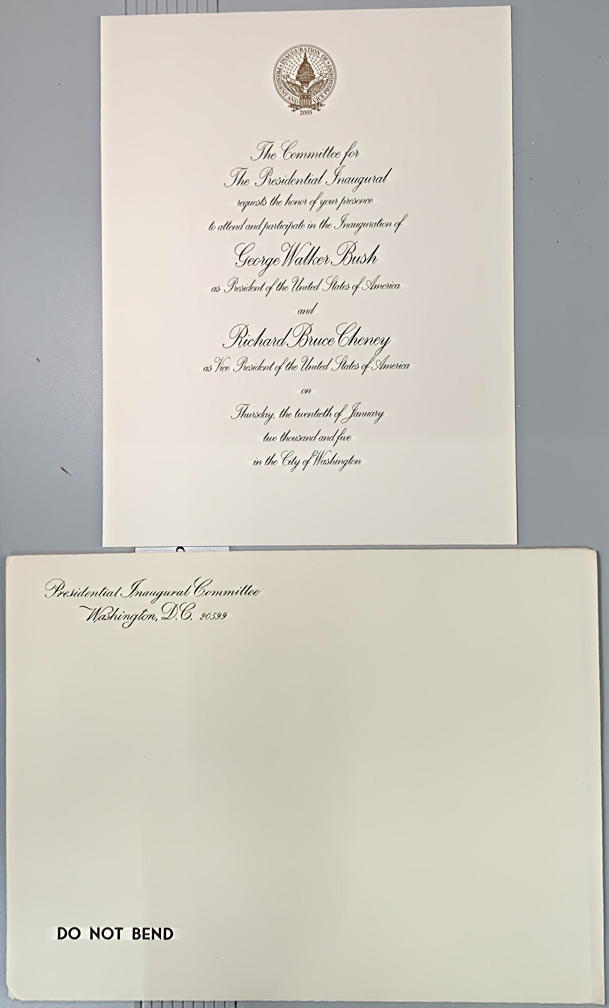 INAUGURATION OF
PRESIDENT AND VICE PRESIDENT
2005
The Committee for
The Presidential Inaugural
requests the honor of your presence
to attend and participate in the Inauguration of
George Walker Bush
as President of the United States of America
and
Richard Bruce Cheney
as Vice President of the United States of America
on
Thursday, the twentieth of January
two thousand and five
in the City of Washington
Presidential Inaugural Committee
Washington, D.C. 20599
DO NOT BEND